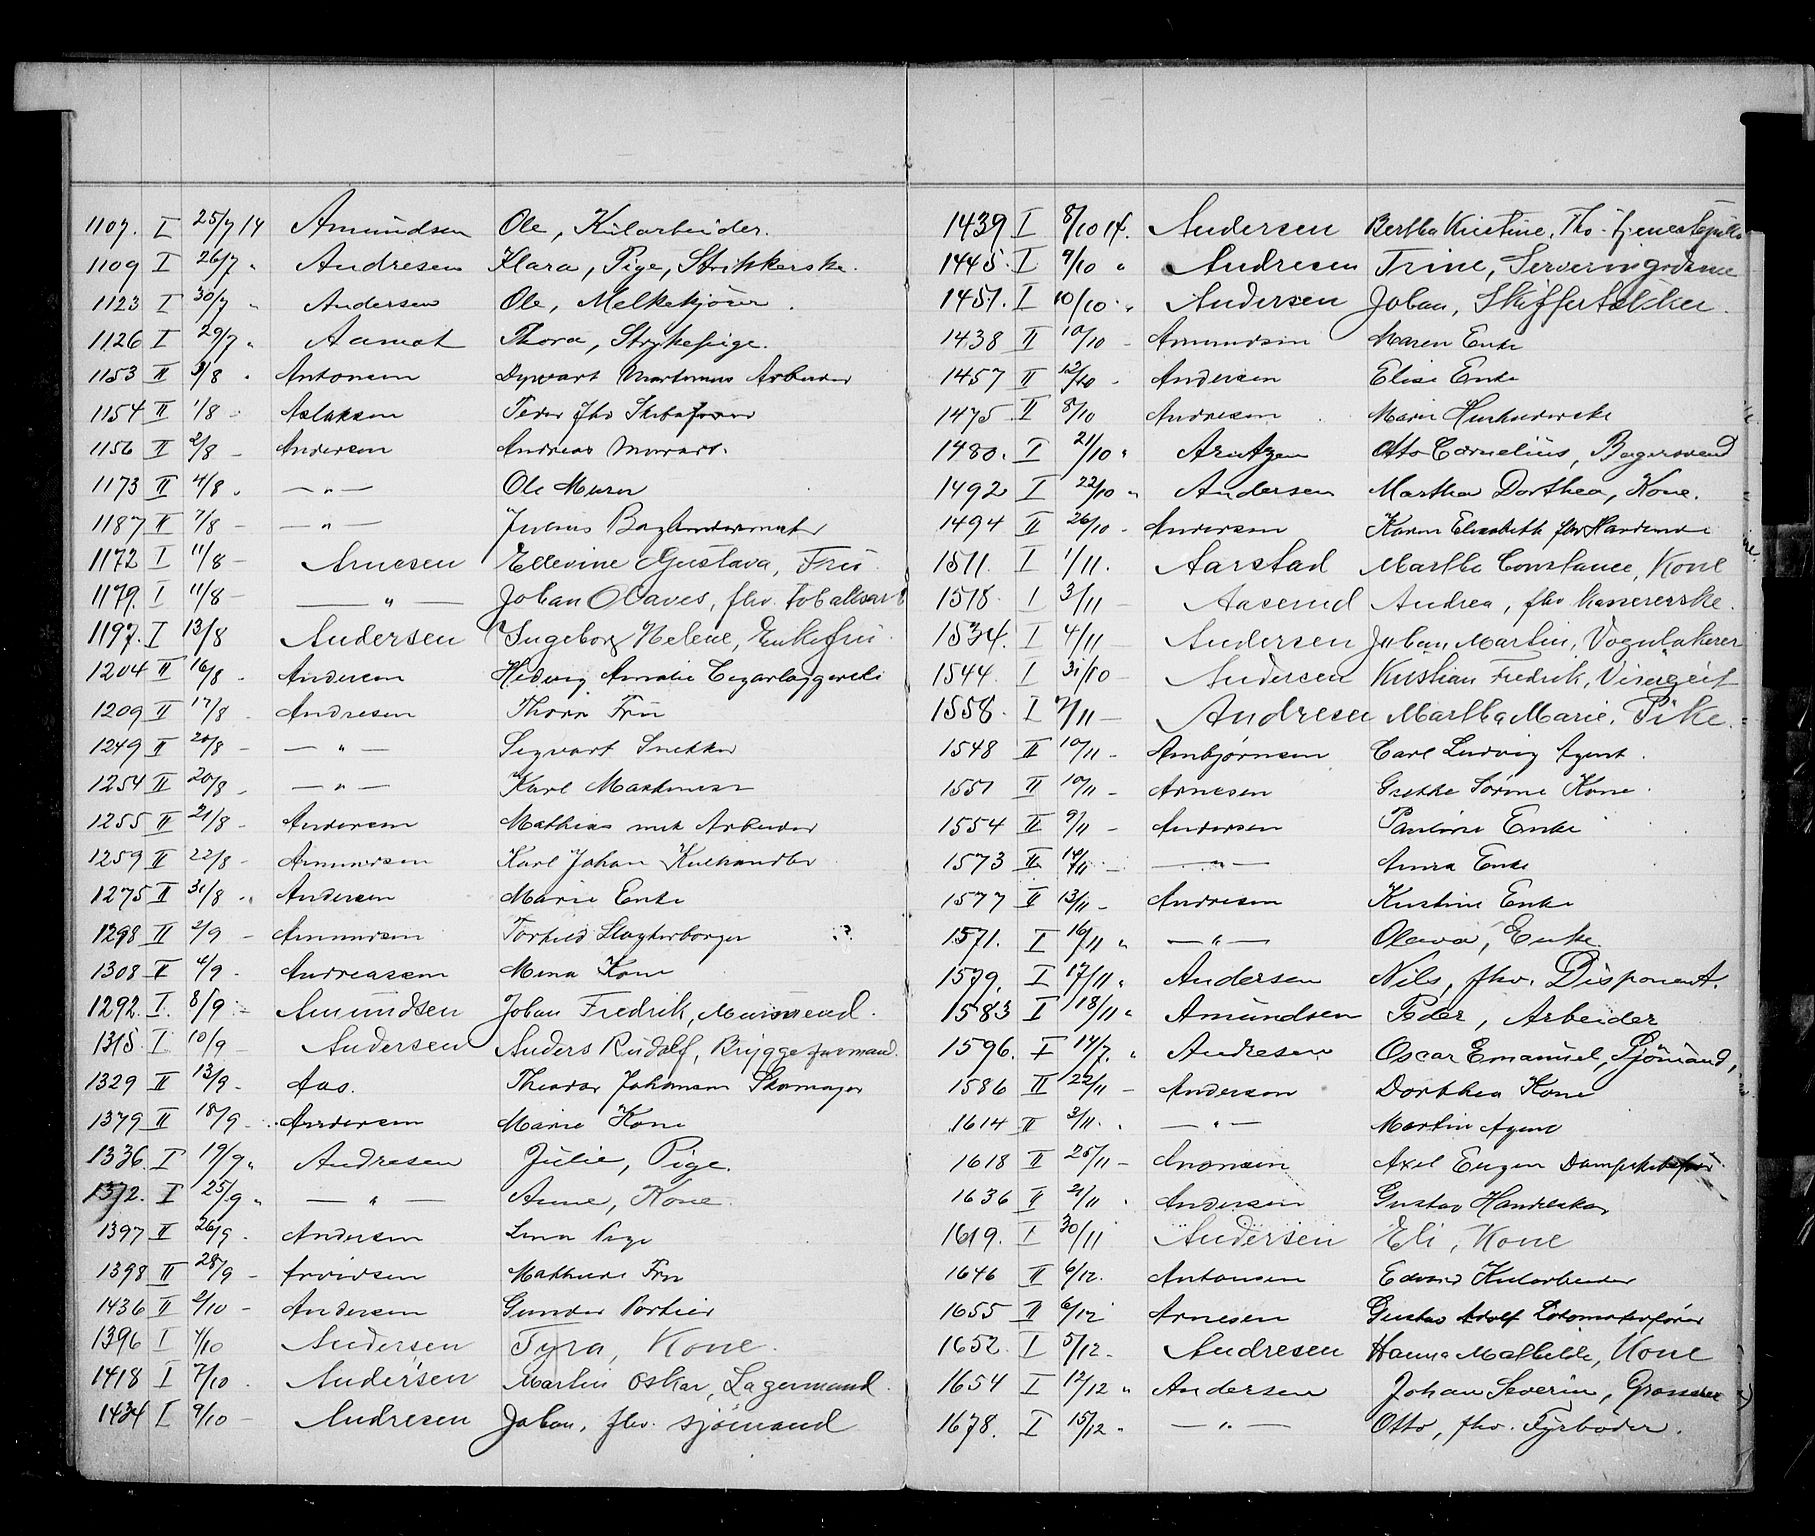 1107. I 25/7 14 Amundsen Ole, Kularbeider.
1109 I 26/7 " Andresen Klara, Pige, Strikkerske.
1123 I 30/7 " Andersen Ole, Melkekjører.
1126 I 29/7 " Aamot Thora, Strykepige.
1153 II 3/8 " Antonsen Dyvart Martinius Arbeider
1154 II 1/8 - Aslaksen Peder fhv
1156 II 2/8 - Andersen Andreas
1173 II 4/8 " — " — Ole Murer
1187 II 7/8 - — " — Julius
1172 I 11/8 - Arnesen Ellevine Gustava, Frü.
1179. I 11/8 - — " — Johan Olaves, fhv.
1197. I 13/8 Andersen Ingeborg Helene, Enkefrü.
1204 II 16/8 - Andersen Hedvig Amalie
1209 II 17/8 - Andresen Thora Frü
1249 II 20/8 - — " — Sigvart Snekker
1254 II 20/8 - — " — Karl
1255 II 21/8 - Andersen Mathias Arbeider
1259 II 22/8 - Amundsen Karl Johan Kulhandler
1275 II 31/8 " Andersen Marie Enke
1298 II 2/9 - Amundsen Torkild ?
1308 II 4/9 - Andreassen Mina Kone
1292. I. 8/9 - Amundsen Johan Fredrik, Mursvend.
1315. I 10/9 Andersen Anders Rudolf, Bryggeformand.
1329 II 13/9 - Aas. Theodor Johansen Skomager
1379 II 18/9 - Andersen Marie Kone
1336. I 19/9 " Andresen Julie, Pige.
1372. I 25/9 " — " — Anne, Kone
1397 II 26/9 - Andersen Lina Pige
1398 II 28/9 - Arvidsen Mathilde Frü
1436 II 2/10 - Andersen Gunder Portier
1396 I 4/10 Andersen Tyra, Kone.
1418 I 7/10 Andersen Martin Oskar, Lagermand.
1434 I 9/10 - Andresen Johan, fhv. sjömand
1439 I 8/10 14. Andersen Bertha Kristine, fhv. tjenestepike
1445. I 9/10 " Andresen Trine, Serveringsdame
1451. I 10/10 " Andersen Johan, Skiffertækker.
1438 II 10/10 - Amundsen Maren Enke
1457 II 12/10 - Andersen Elise Enke
1475 II 8/10 Andresen Marie
1480. I 21/10 " Arntzen Otto Cornelius, Bagersvend
1492 I 22/10 " Andersen Marthea Dorthea, Kone.
1494 II 26/10 - Andersen Karen Elisabeth fhv
1511. I 1/11. Aarstad Martha Constance, Kone
1518. I 3/11 - Aaserud Andrea, fhv Kassererske.
1534. I 4/11 - Andersen Johan Martin, Vognlakerer
1544. I 31/10 - Andersen Kristian Fredrik, Viseagent
1558. I 7/11 - Andresen Martha Marie, Pike.
1548 II 10/11 - Arnbjørnsen Carl Ludvig Agent.
1551 II 10/11 - Arnesen Grethe Sørine Kone
1554 II 9/11 - Andersen Pauline Enke
1573 II 14/11 - — " — Anna Enke
1577 II 13/11 - Andresen Kristine Enke
1571. I 16/11 " — " — Olava, Enke.
1579. I 17/11 " Andersen Nils, fhv. Disponent.
1583 I 18/11 " Amundsen Peder, Arbeider
1596. I 14/7. " Andresen Oscar Emanuel, Sjömand,
1586 II 22/11 - Anderson Dorthea Kone
1614 II 3/11. " — " — Martin Agent
1618 II 25/11 - Aronsen Axel Eugen
1636 II 2/11 Andersen Gustav
1619. I 30/11 Andersen Eli, Kone
1646 II 6/12. Antonsen Edvard Kularbeider
1655 II 6/12 Arnesen Gustav Adolf Lokomotivfører
1652. I 5/12. Andresen Hanna Mathilde, Kone
1654 I 12/12 " Andersen Johan Severin, Grosserer
1678. I 15/12 " — " — Otto, fhv. Fyrbøder.